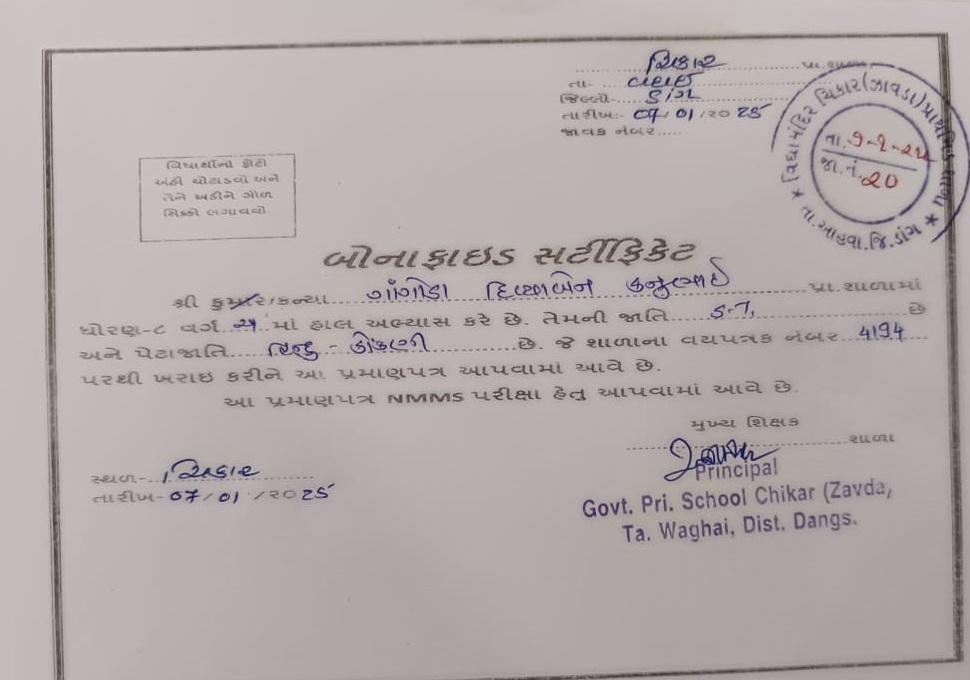 ચિકાર પ્રા.શાળા
તા- વઘઈ
જિલ્લો- ડાંગ
તારીખ:- 07/01/૨૦25
જાવક નંબર.....
વિદ્યામંદિર ચિકાર(ઝાવડા)પ્રાથમિક શાળા
તા.આહવા.જિ.ડાંગ
તા. 7-1-25
જા.નં. 20
વિદ્યાર્થીનો ફોટો
અહીં ચોટાડવો અને
તેને અડીને ગોળ
સિક્કો લગાવવો.
બોનાફાઇડ સર્ટીફિકેટ
શ્રી કુમાર/કન્યા ગાંગોડા દિવ્યાબેન કનુભાઈ પ્રા.શાળામાં
ધોરણ-૮ વર્ગ અ માં હાલ અભ્યાસ કરે છે. તેમની જાતિ S.T. છે
અને પેટાજાતિ હિન્દુ - કોંકણી છે. જે શાળાના વયપત્રક નંબર 4194
પરથી ખરાઇ કરીને આ પ્રમાણપત્ર આપવામાં આવે છે.
આ પ્રમાણપત્ર NMMS પરીક્ષા હેતુ આપવામાં આવે છે.
મુખ્ય શિક્ષક
શાળા
સ્થળ- ચિકાર
તારીખ- 07/01/૨૦25
Principal
Govt. Pri. School Chikar (Zavda,
Ta. Waghai, Dist. Dangs.